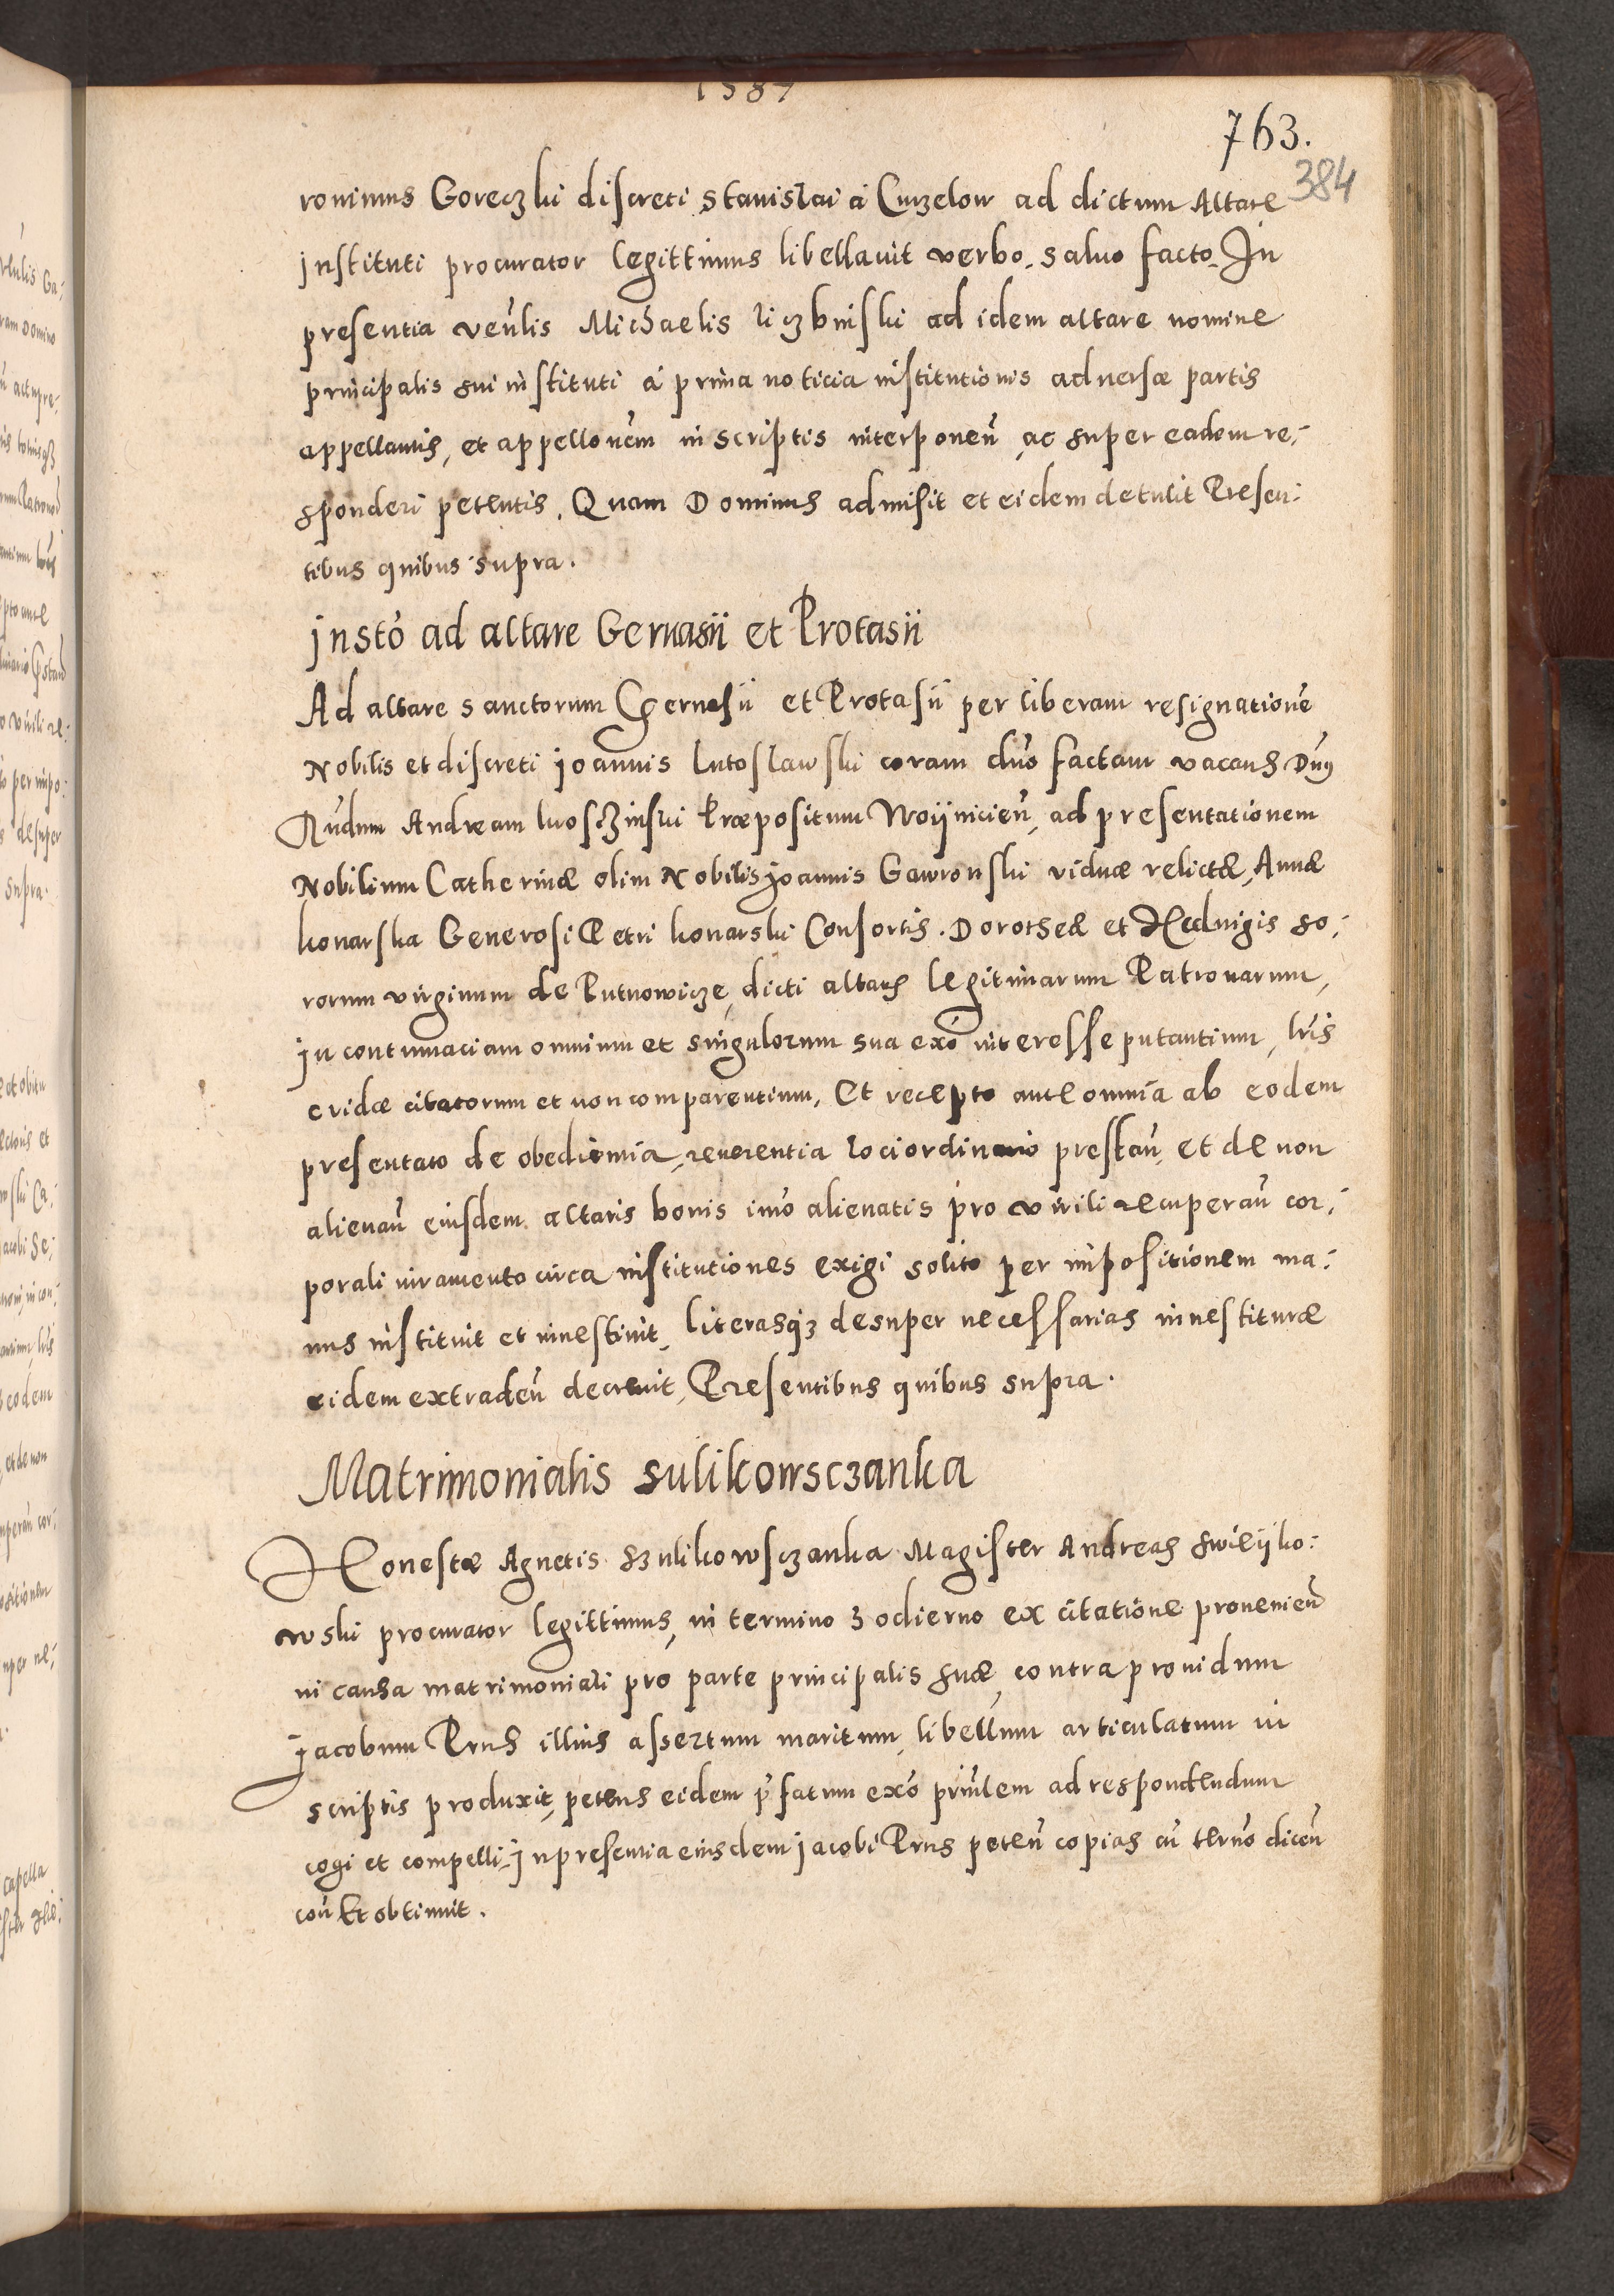 1587
763.
384
ronimus Goreczki discreti Stanislai á Curzelow ad dictum Altare
Instituti procurator legittimus libellavit verbo, salvo facto. In
presentia venlis Michaelis liczbinski ad idem altare nomine
principalis sui instituti á prima noticia institutionis adversæ partis
appellantis, et appellonem in scriptis interponen, ac super eadem re-
sponderi petentis. Quam Dominus admisit et eidem detulit Presen-
tibus quibus supra.
Insto ad altare Gervasii et Protasii
Ad altare sanctorum Gervasii et Protasii per liberam resignatione
Nobilis et discreti Joannis Lutoslawski coram duo factam vacans Dnus
Nudum Andream kvosczinski Præpositum Woijnicien, ad presentationem
Nobilium Catherinæ olim Nobilis Joannis Gawronski viduæ relictæ, Annæ
konarska Generosi Petri konarski Consortis. Dorotheæ et Hedvigis so-
rorum virginum de Rutnowicze, dicti altaris legitimarum Patronarum,
In contumaciam omnium et singulorum sua exo interesse putantium, lris
cridæ citatorum et non comparentium. Et recepto ante omnia ab eodem
presentato de obedientia, reverentia loci ordinario prestan, et de non
alienan eiusdem altaris bonis imo alienatis pro virili recuperan cor-
porali iuramento circa institutiones exigi solito per impositionem ma-
nus instituit et investivit, literasq3 desuper necessarias investituræ
eidem extraden decrevit, Presentibus quibus supra.
Matrimonialis sulikowsczanka
Honestæ Agnetis Szulikowsczanka Magister Andreas Swieijko-
wski procurator legittimus, in termino hodierno ex citatione provenien
in causa matrimoniali pro parte principalis suæ contra providum
Jacobum Prus illius assertum maritum, libellum articulatum in
scriptis produxit, petens eidem pfatum exo principalem ad respondendum
cogi et compelli. In presentia eiusdem Jacobi Prus peten copias cu termo dicen
con Et obtinuit.